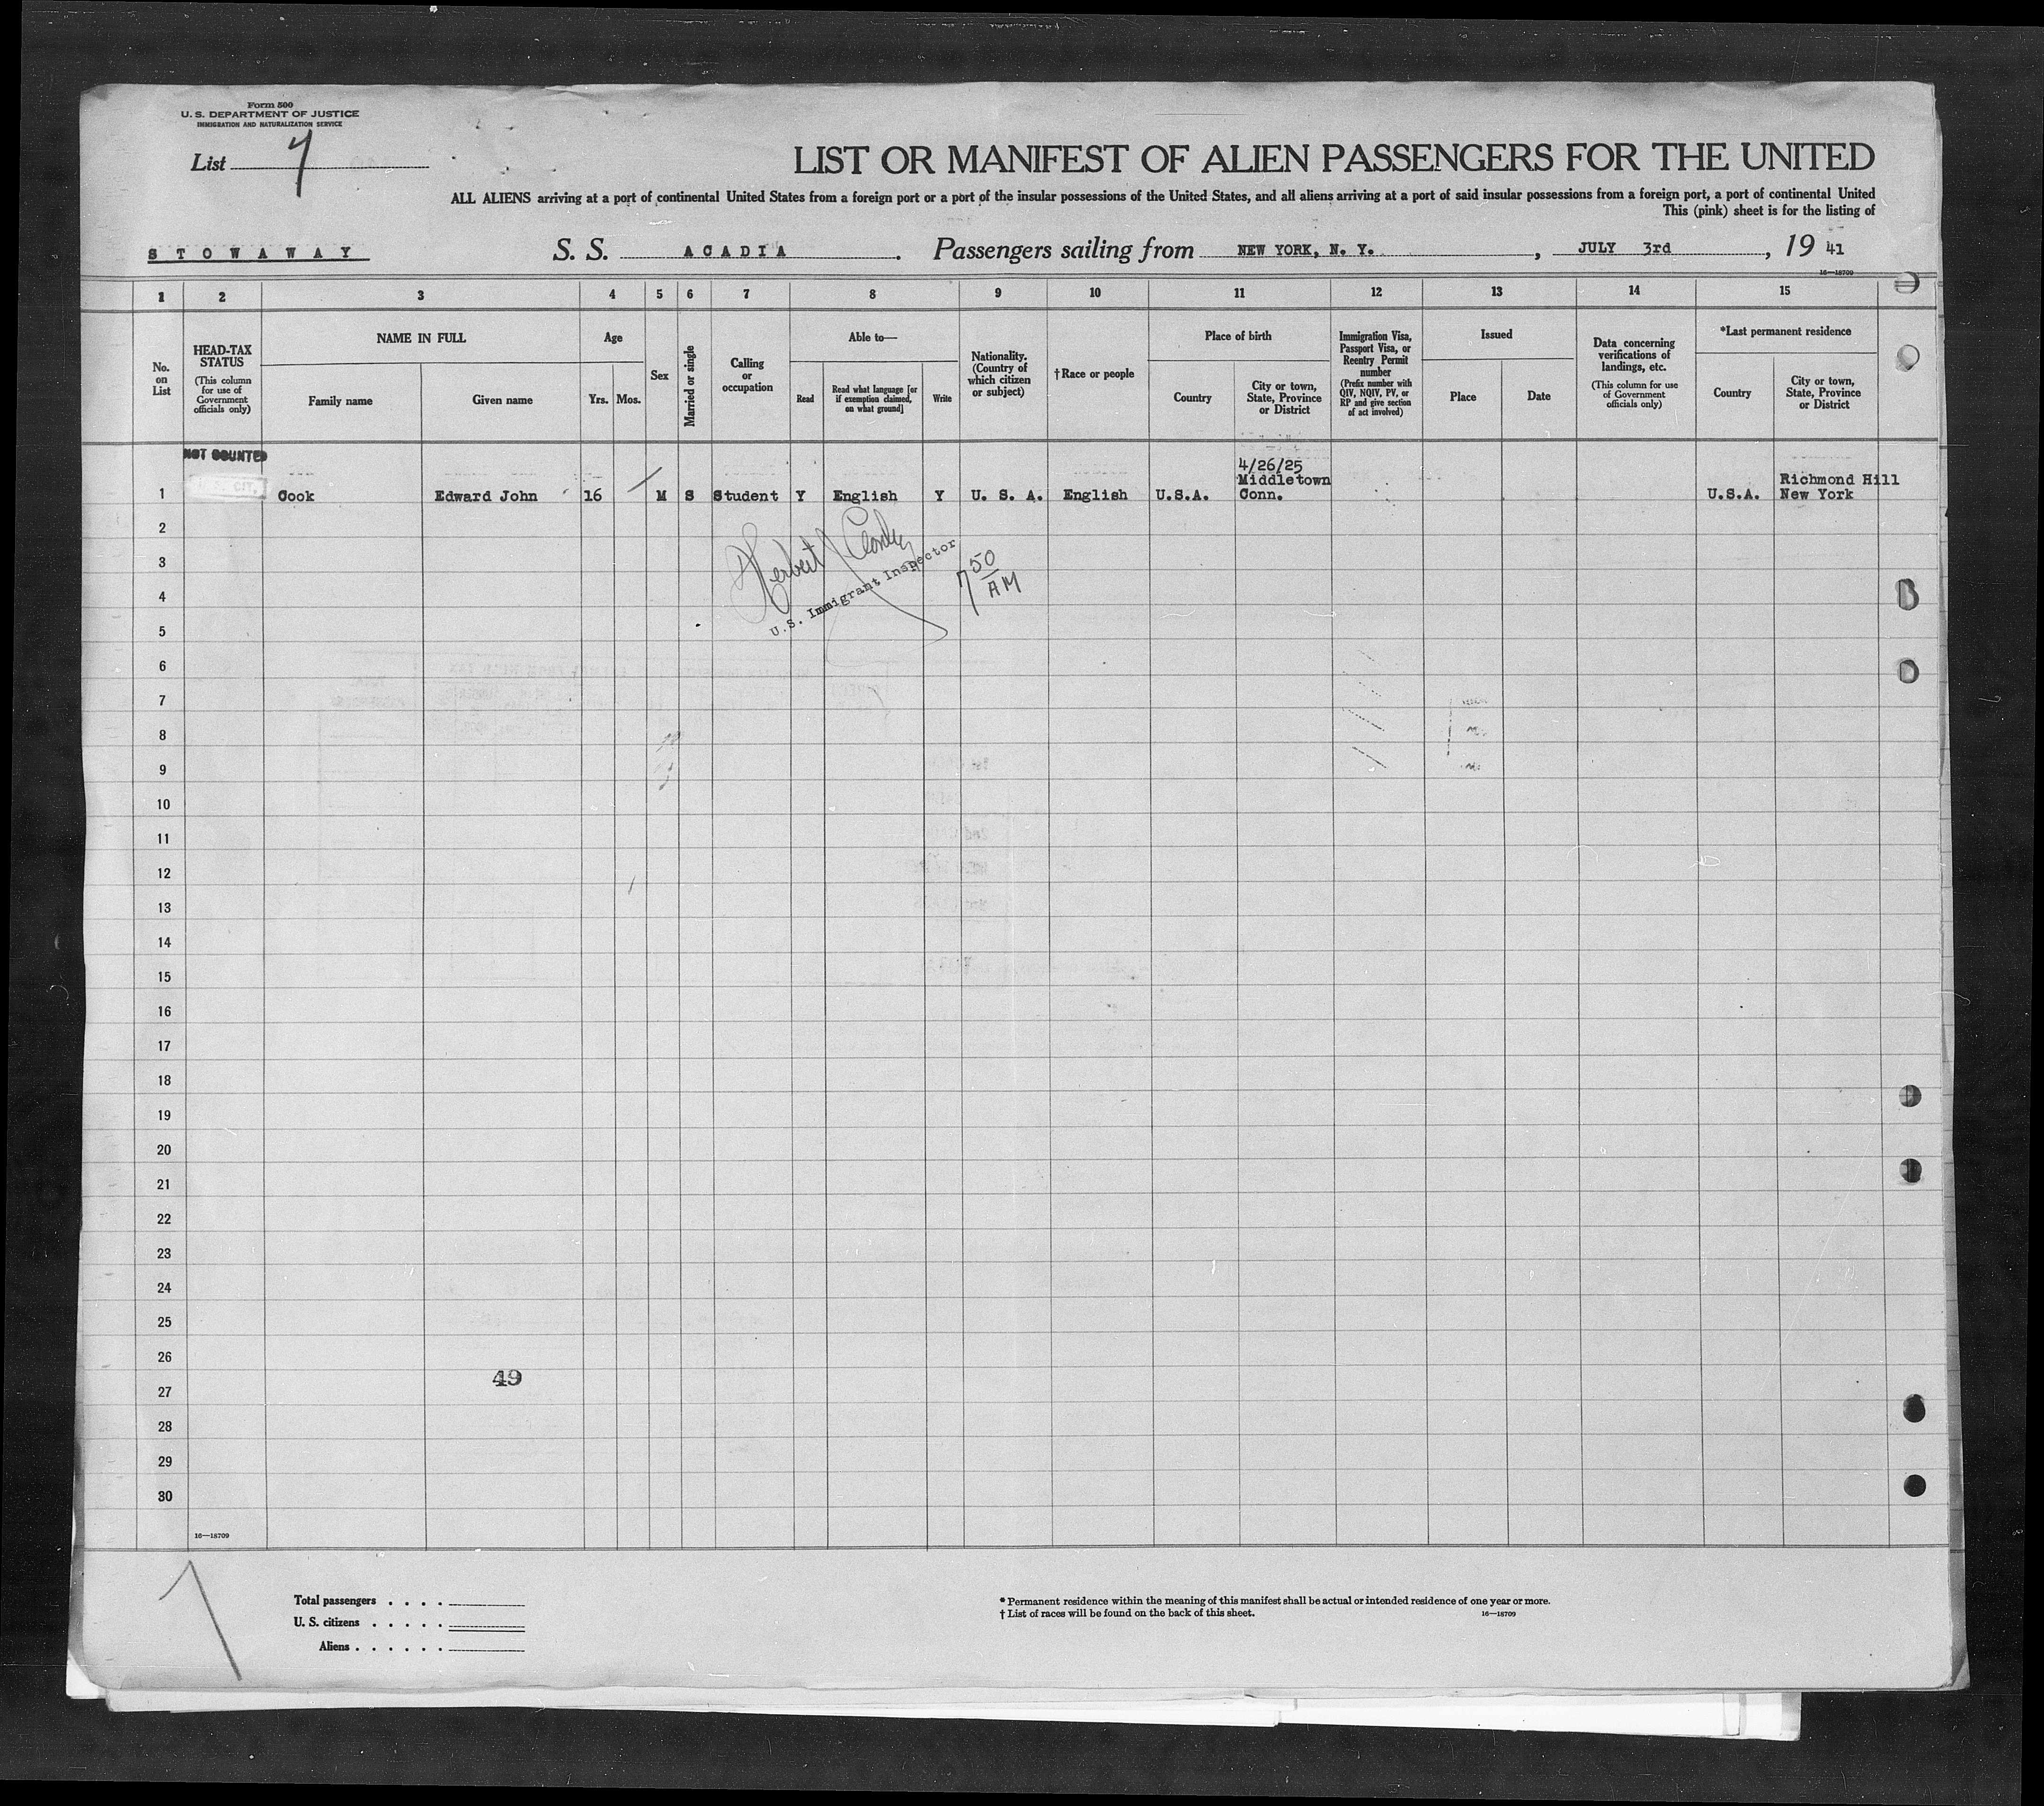 Form 500
U. S. DEPARTMENT OF JUSTICE
IMMIGRATION AND NATURALIZATION SERVICE
List 7
LIST OR MANIFEST OF ALIEN PASSENGERS FOR THE UNITED
ALL ALIENS arriving at a port of continental United States from a foreign port or a port of the insular possessions of the United States, and all aliens arriving at a port of said insular possessions from a foreign port, a port of continental United
This (pink) sheet is for the listing of
STOWAWAY S. S. ACADIA. Passengers sailing from NEW YORK, N. Y., JULY 3rd, 19 41
16—18709
1 2 3 4 5 6 7 8 9 10 11 12 13 14 15
No. on List
HEAD-TAX STATUS
(This column for use of Government officials only)
NAME IN FULL
Family name
Given name
Age
Yrs. Mos.
Sex
Married or single
Calling or occupation
Able to—
Read
Read what language [or if exemption claimed, on what ground]
Write
Nationality. (Country of which citizen or subject)
†Race or people
Place of birth
Country
City or town, State, Province or District
Immigration Visa, Passport Visa, or Reentry Permit number
(Prefix number with QIV, NQIV, PV, or RP and give section of act involved)
Issued
Place
Date
Data concerning verifications of landings, etc.
(This column for use of Government officials only)
*Last permanent residence
Country
City or town, State, Province or District
NOT COUNTED
CIT.
4/26/25
Middletown Richmond Hill
1 Cook Edward John 16 M S Student Y English Y U. S. A. English U.S.A. Conn. U.S.A. New York
2
Herbert
3
U.S. Immigrant Inspector
7 50 AM
4
5
6
7
8
9
10
11
12
13
14
15
16
17
18
19
20
21
22
23
24
25
26
49
27
28
29
30
16—18709
Total passengers . . . .
U. S. citizens . . . . .
Aliens . . . . . .
* Permanent residence within the meaning of this manifest shall be actual or intended residence of one year or more.
† List of races will be found on the back of this sheet. 16—18709